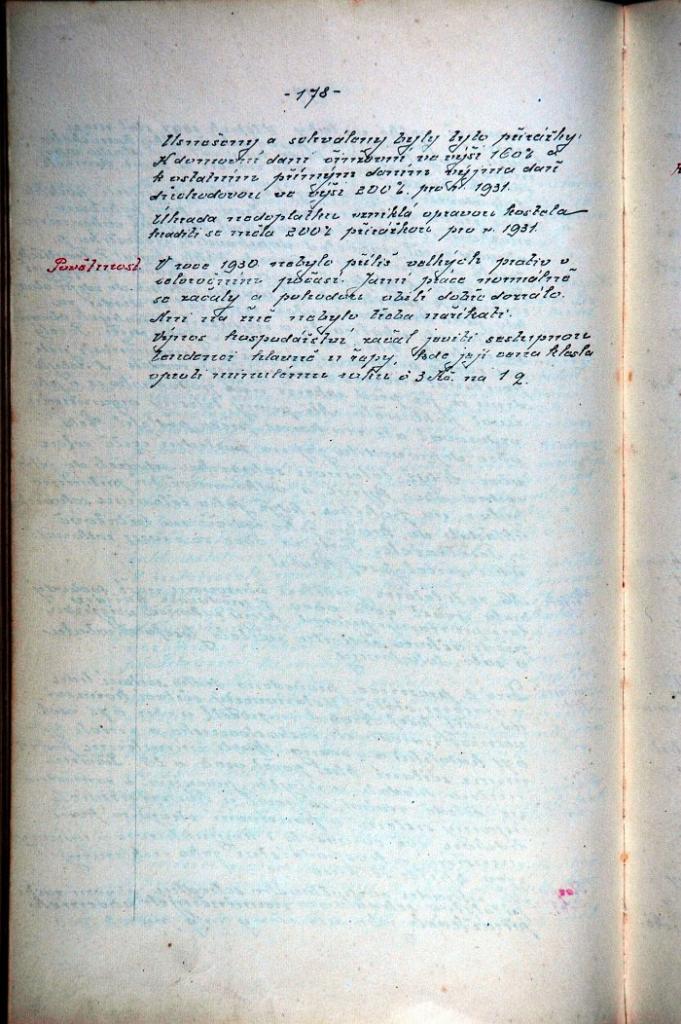 -178-
Usnešeny a schváleny byly tyto přirážky:
K domovní dani činžovní ve výši 160% a
k ostatním přímým daním vyjma daň
důchodovou ve výši 200% pro r. 1931.
Úhrada nedoplatku vzniklá opravou kostela
hraditi se měla 200% přirážkou pro r. 1931.
Povětrnost.
V roce 1930 nebylo příliš velkých protiv v
celoročním počasí. Jarní práce normálně
se začaly a pohodou obilí dobře dozrálo.
Ani na řně nebylo třeba naříkati.
Výnos hospodářství začal jeviti sestupnou
tendenci hlavně u řepy, kde její cena klesla
oproti minulému roku o 3 Kč. na 1 q.